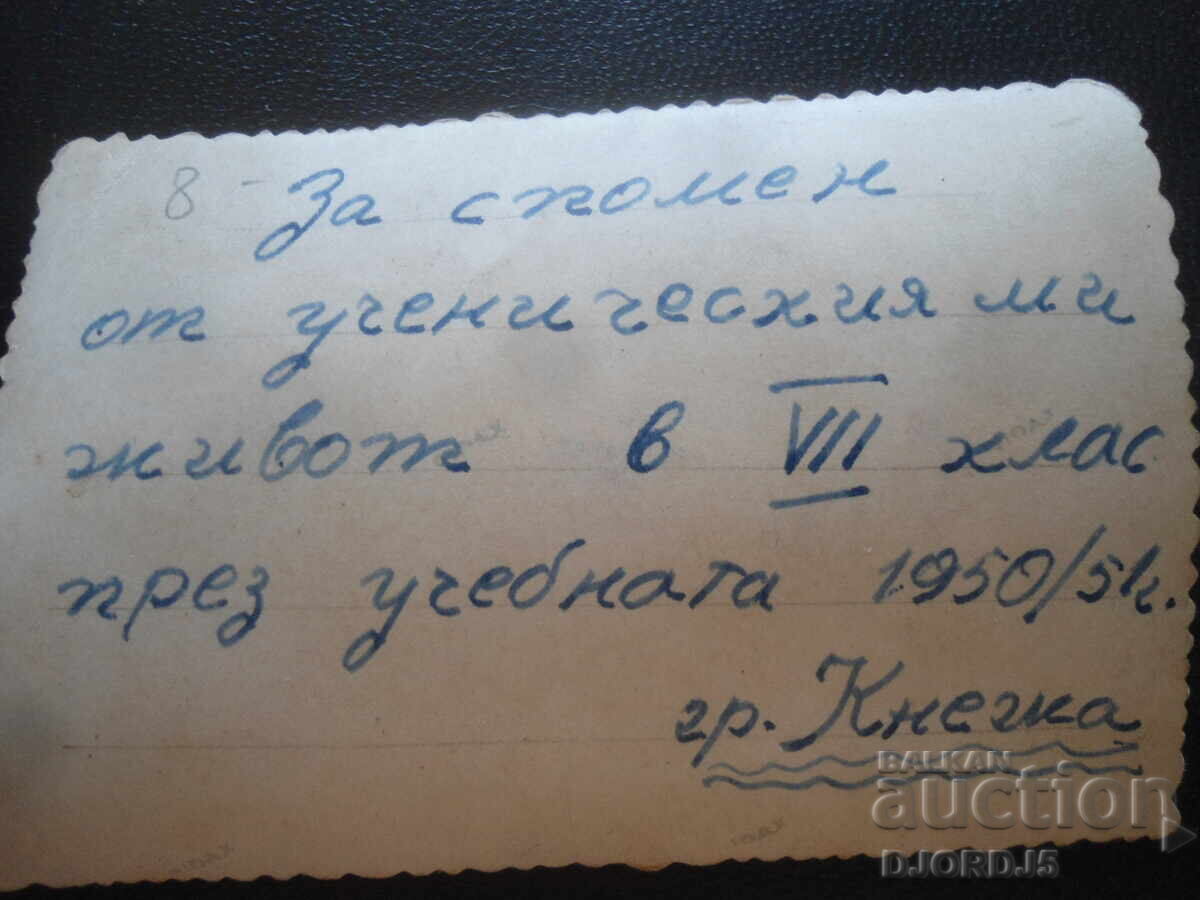 8 - За спомен
от ученическия ми
живот в VII клас
през учебната 1950/51г.
гр. Кнежа
BALKAN
auction
DJORDJ5